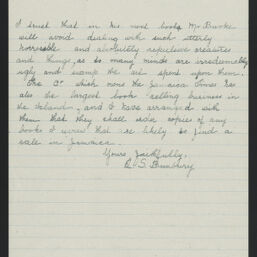 I trust that in his next book, Mr Burke
will avoid dealing with such utterly
horrible and absolutely repulsive creatures
and things, as so many minds are irredeemably
ugly and swamp the art spent upon them.
The Co which owns the Jamaica Times has
also the largest book selling business in
the Island, and I have arranged with
them that they shall order copies of any
books I review that are likely to find a
sale in Jamaica.
Yours faithfully,
S. Bunbury